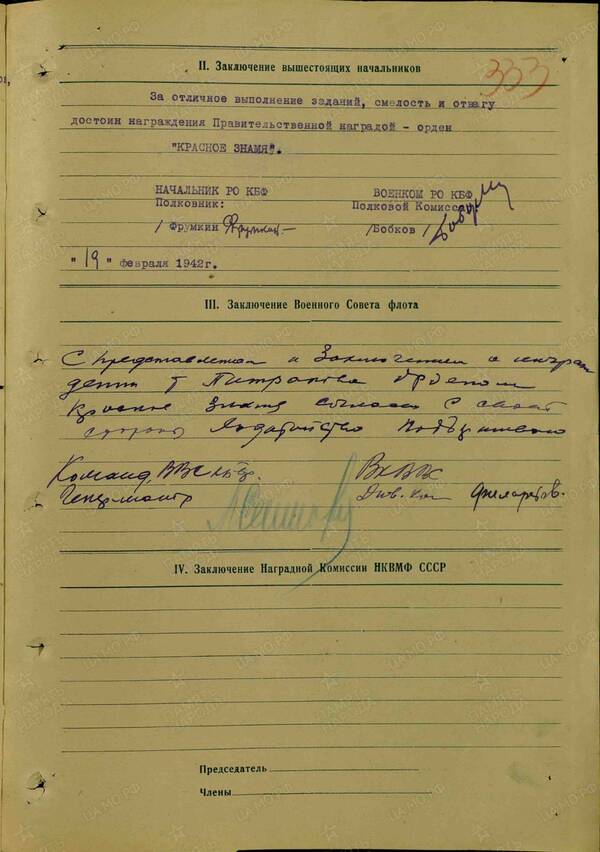 333
II. Заключение вышестоящих начальников
За отличное выполнение заданий, смелость и отвагу
достоин награждения Правительственной наградой - орден
"КРАСНОЕ ЗНАМЯ".
НАЧАЛЬНИК РО КБФ ВОЕНКОМ РО КБФ
Полковник: Полковой Комиссар
/ Фрумкин /Бобков /
"19" февраля 1942г.
III. Заключение Военного Совета флота
С представлением и Заключением о награж
дении т Орденом
Красное Знамя согласен с своей
стороны Ходатайство
Команд. ВВС
IV. Заключение Наградной Комиссии НКВМФ СССР
Председатель
Члены